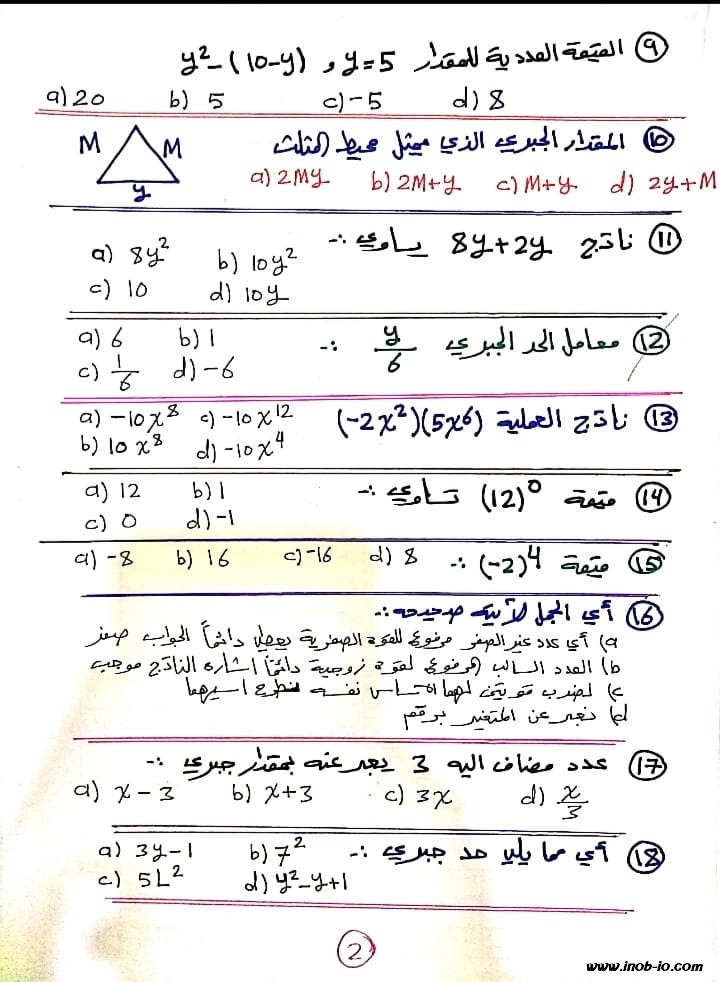 ٩ القيمة العددية للمقدار y=5 و y²-(10-y)
a) 20 b) 5 c) -5 d) 8
١٠ المقدار الجبري الذي يمثل محيط المثلث
M M y
a) 2My b) 2M+y c) M+y d) 2y+M
11 ناتج 8y+2y يساوي :-
a) 8y² b) 10y²
c) 10 d) 10y
12 معامل الحد الجبري y/6 :-
a) 6 b) 1
c) 1/6 d) -6
13 ناتج العملية (-2x²)(5x⁶)
a) -10x⁸ c) -10x¹²
b) 10x⁸ d) -10x⁴
14 قيمة (12)⁰ تساوي :-
a) 12 b) 1
c) 0 d) -1
15 قيمة (-2)⁴ :-
a) -8 b) 16 c) -16 d) 8
16 أي الجمل الآتية صحيحة :-
a) أي عدد غير الصفر مرفوع للقوة الصفرية يعطي دائماً الجواب صفر
b) العدد السالب المرفوع لقوة زوجية دائماً اشارة الناتج موجب
c) لضرب قوتين لهما الاساس نفسه نطرح اسيهما
d) نعبر عن المتغير برقم
17 عدد مضاف اليه 3 يعبر عنه بمقدار جبري :-
a) x-3 b) x+3 c) 3x d) x/3
18 أي مما يلي حد جبري :-
a) 3y-1 b) 7²
c) 5L² d) y²-y+1
2
www.inob-jo.com